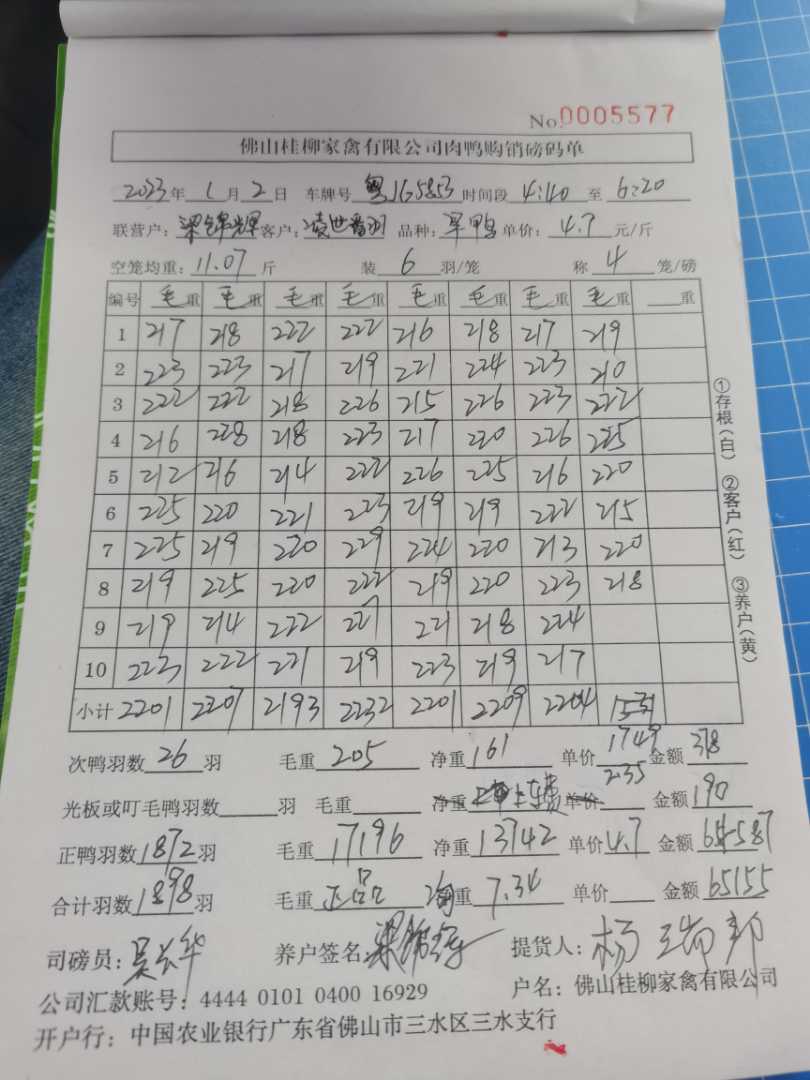 No. 0005577
佛山桂柳家禽有限公司肉鸭购销磅码单
2023年 1月 2日 车牌号 粤165853 时间段 4:40 至 6:20
联营户: 梁锦辉 客户: 凌世 品种: 单价: 4.7 元/斤
空笼均重: 11.07 斤 装 6 羽/笼 称 4 笼/磅
编号 毛重 毛重 毛重 毛重 毛重 毛重 毛重 毛重 重
1 217 218 222 222 216 218 217 219
2 223 223 217 219 221 224 223 210
3 222 222 218 226 215 226 223 222
4 216 228 218 223 217 220 226 225
5 212 216 214 222 226 225 216 220
6 225 220 221 223 219 219 222 215
7 225 219 220 229 224 220 213 220
8 219 225 220 222 219 220 223 218
9 219 214 222 227 221 218 224
10 223 222 221 219 223 219 217
小计 2201 2207 2193 2232 2201 2209 2204
①存根(白) ②客户(红) ③养户(黄)
1749
次鸭羽数 26 羽 毛重 205 净重 161 单价 2.35 金额 378
光板或叮毛鸭羽数 羽 毛重 净重 单价 金额 190
正鸭羽数 1872 羽 毛重 17196 净重 13742 单价 4.7 金额 64587
合计羽数 1898 羽 毛重 正品 重 7.34 单价 金额 65155
司磅员: 吴长华 养户签名: 梁锦辉 提货人: 杨瑞邦
公司汇款账号: 4444 0101 0400 16929 户名: 佛山桂柳家禽有限公司
开户行: 中国农业银行广东省佛山市三水区三水支行